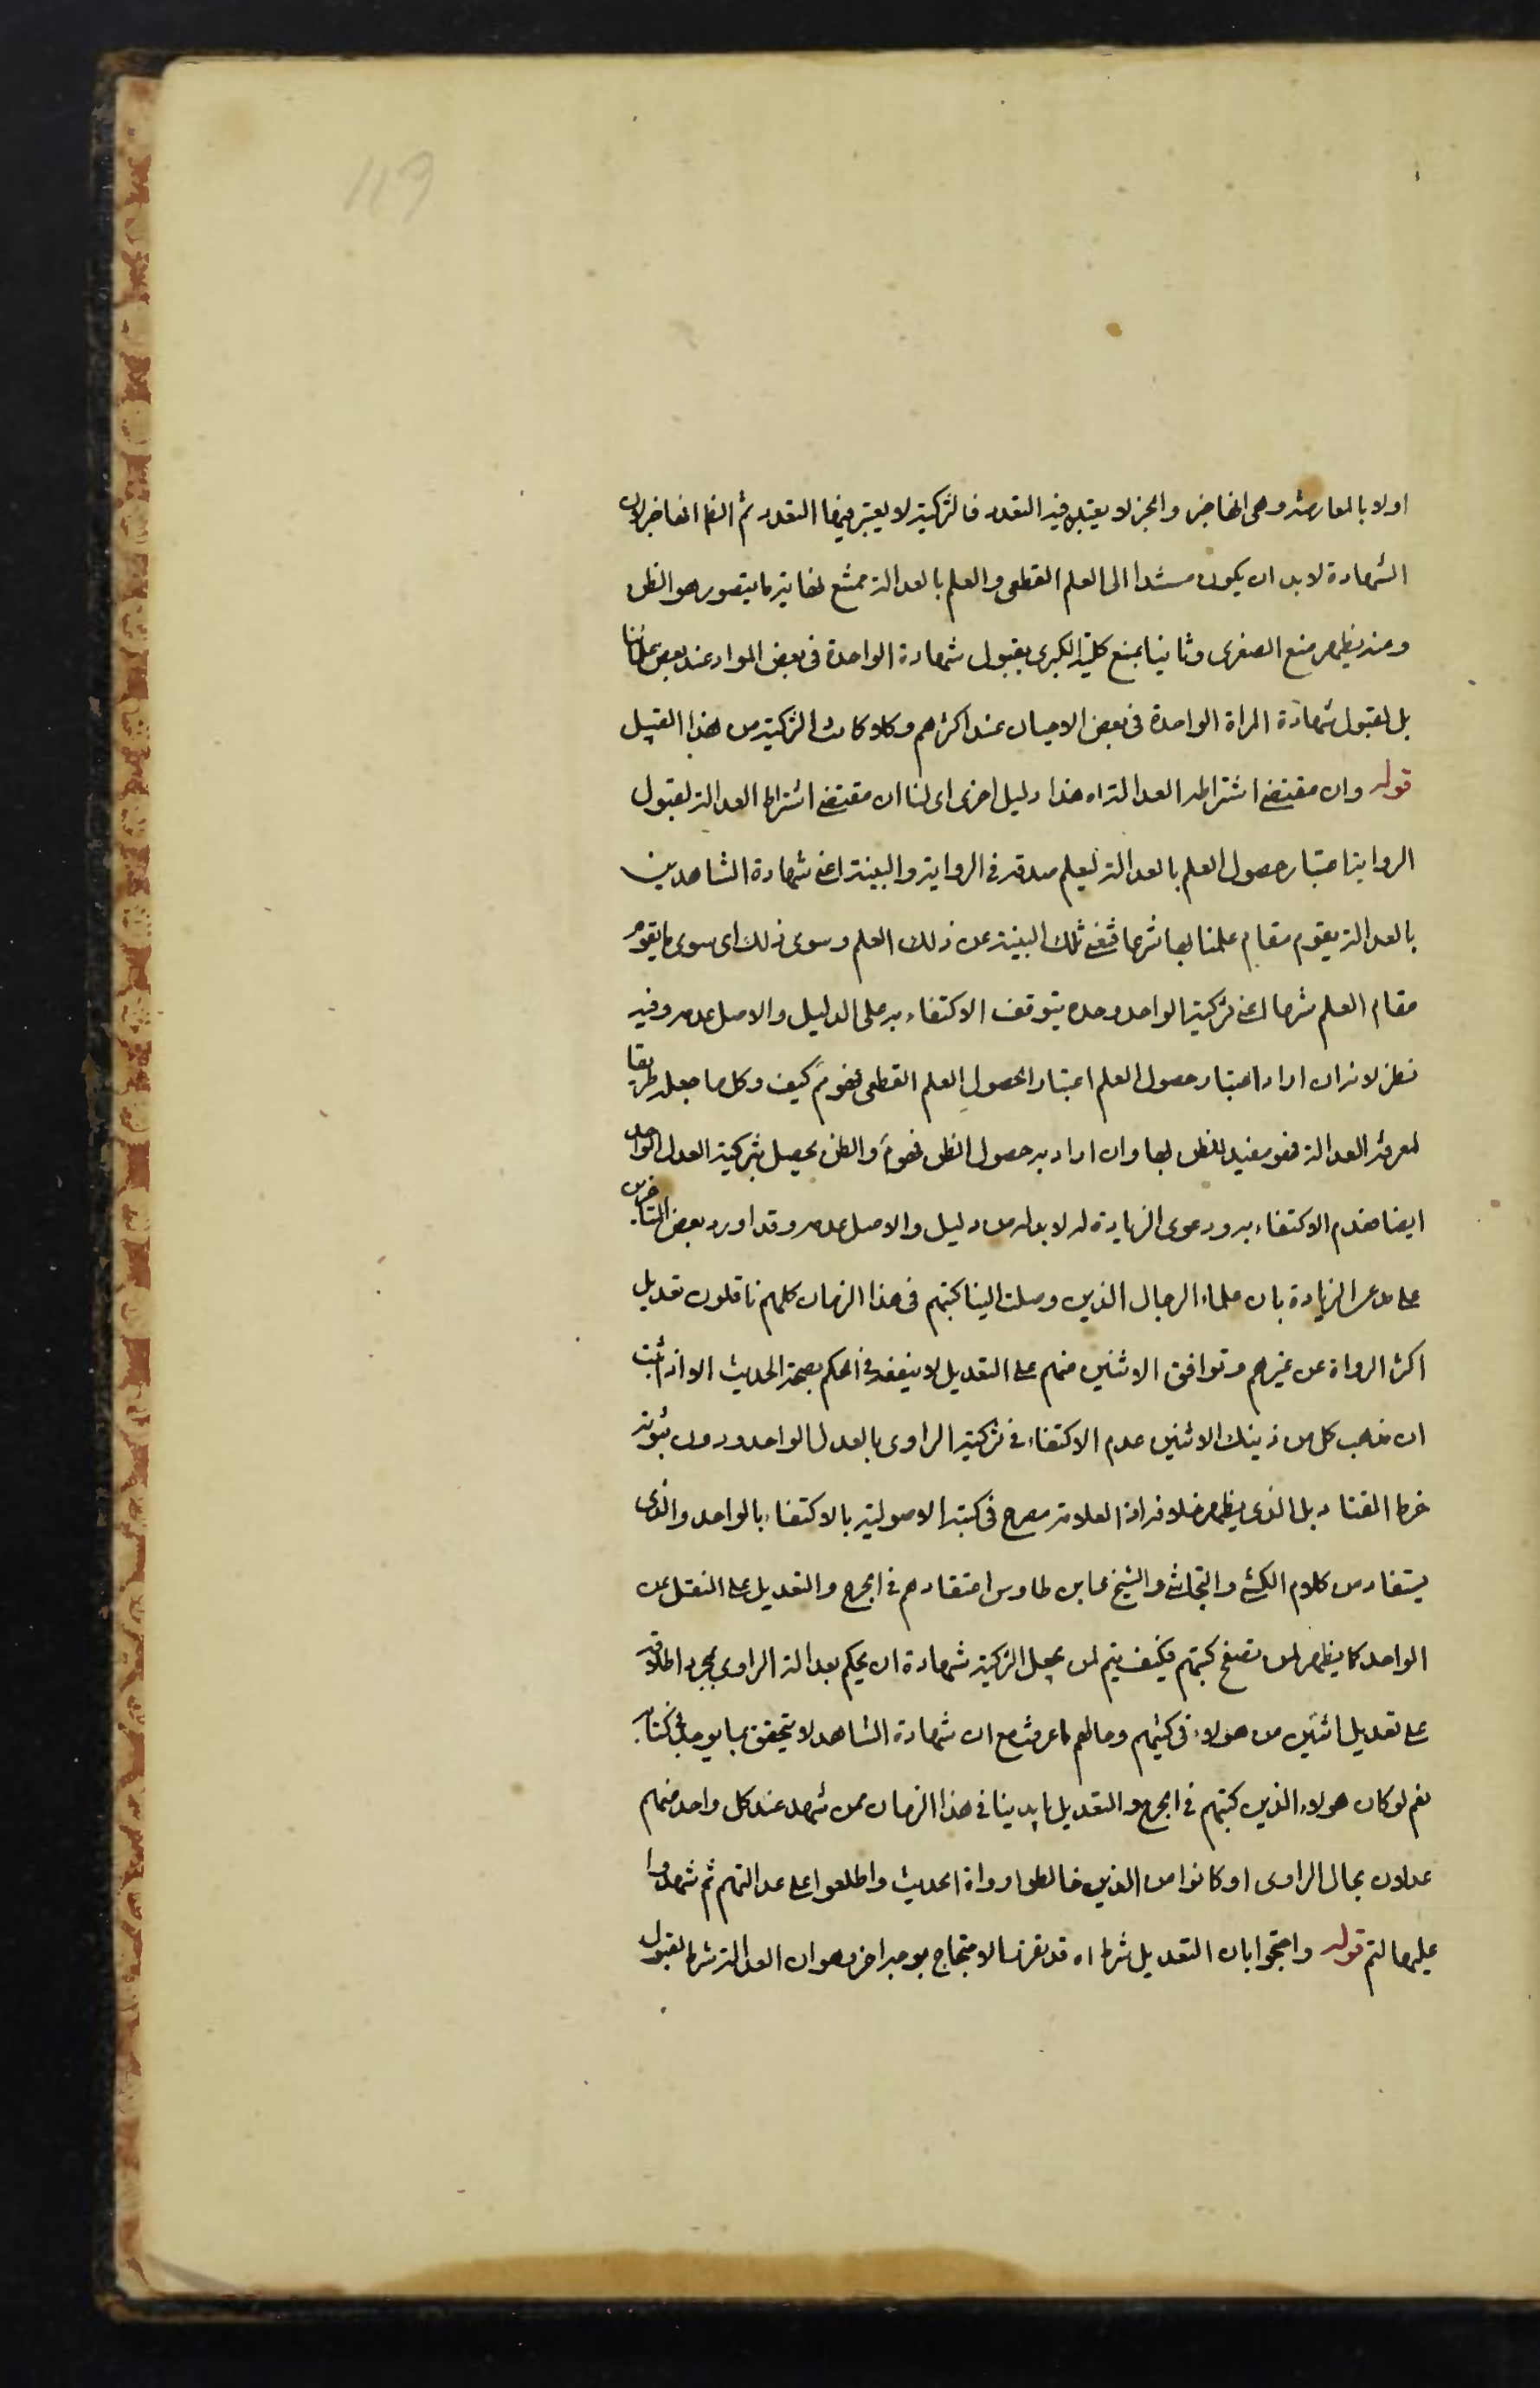 119
اولا بالمعارضة وهى انها خبر والخبر لا يعتبر فيه التعدد فالتزكية لا يعتبر فيها التعدد ثم الظ انها خبر لان
الشهادة لا بد ان يكون مستندا الى العلم القطعى والعلم بالعدالة ممتنع لغاية ما يتصور هو الظن
ومنه يظهر منع الصغرى وثانيا بمنع كلية الكبرى بقبول شهادة الواحدة فى بعض المواد عند بعض علمائنا
بل لقبول شهادة المراة الواحدة فى بعض الاحيان عند اكثرهم وكلا كانت التزكية من هذا القبيل
قوله وان مقتضى اشتراط العدالة اه هذا دليل اخرى اى لنا ان مقتضى اشتراط العدالة لقبول
الرواية اعتبار حصول العلم بالعدالة ليعلم صدقه فى الرواية والبينة اعنى شهادة الشاهدين
بالعدالة يقوم مقام علمنا بها شرعا فتغنى تلك البينة عن ذلك العلم وسوى ذلك اى سوى ما يقوم
مقام العلم شرعا اعنى تزكية الواحد وحده يتوقف الاكتفاء به على الدليل والاصل عدمه وفيه
نظر لانه ان اراد اعتبار حصول العلم اعتبار الحصول العلم القطعى فهو م كيف وكل ما جعله طريقا
لمعرفة العدالة فهو مفيد للظن بها وان اراد به حصول الظن فهو م والظن يحصل بتزكية العدل الواحد
ايضا فيلزم الاكتفاء به ودعوى الزيادة له لا بد له من دليل والاصل عدمه وقد اورد بعض المتاخرين
على مدعى الزيادة بان علماء الرجال الذين وصلت الينا كتبهم فى هذا الزمان كلهم ناقلون تعديل
اكثر الرواة عن غيرهم وتوافق الاثنين منهم على التعديل لا ينفعه فى الحكم بصحة الحديث الا اذا ثبت
ان مذهب كل من ذينك الاثنين عدم الاكتفاء فى تزكية الراوى بالعدل الواحد ودون ثبوته
خرط القتاد بل الذى يظهر خلافه اذ العلامة مصرح فى كتبه الاصولية بالاكتفاء بالواحد والذى
يستفاد من كلام الكشى والنجاشى والشيخ وابن طاوس اعتقادهم فى الجرح والتعديل على النقل عن
الواحد كما يظهر لمن تصفح كتبهم فكيف يتم لمن يجعل التزكية شهادة ان يحكم بعدالة الراوى بمجرد اطلاعه
على تعديل اثنين من هولاء فى كتبهم وحالهم ما عرفت مع ان شهادة الشاهد لا يتحقق بما يوجد فى كتابه
نعم لو كان هولاء الذين كتبهم فى الجرح والتعديل بايدينا فى هذا الزمان ممن شهد عند كل واحد منهم
عدلان بحال الراوى او كانوا من الذين خالطوا رواة الحديث واطلعوا على عدالتهم ثم شهدوا
عليها لتم قوله واحتجوا بان التعديل شرط اه قد يقرر الاحتجاج بوجه اخر وهو ان العدالة شرط لقبول